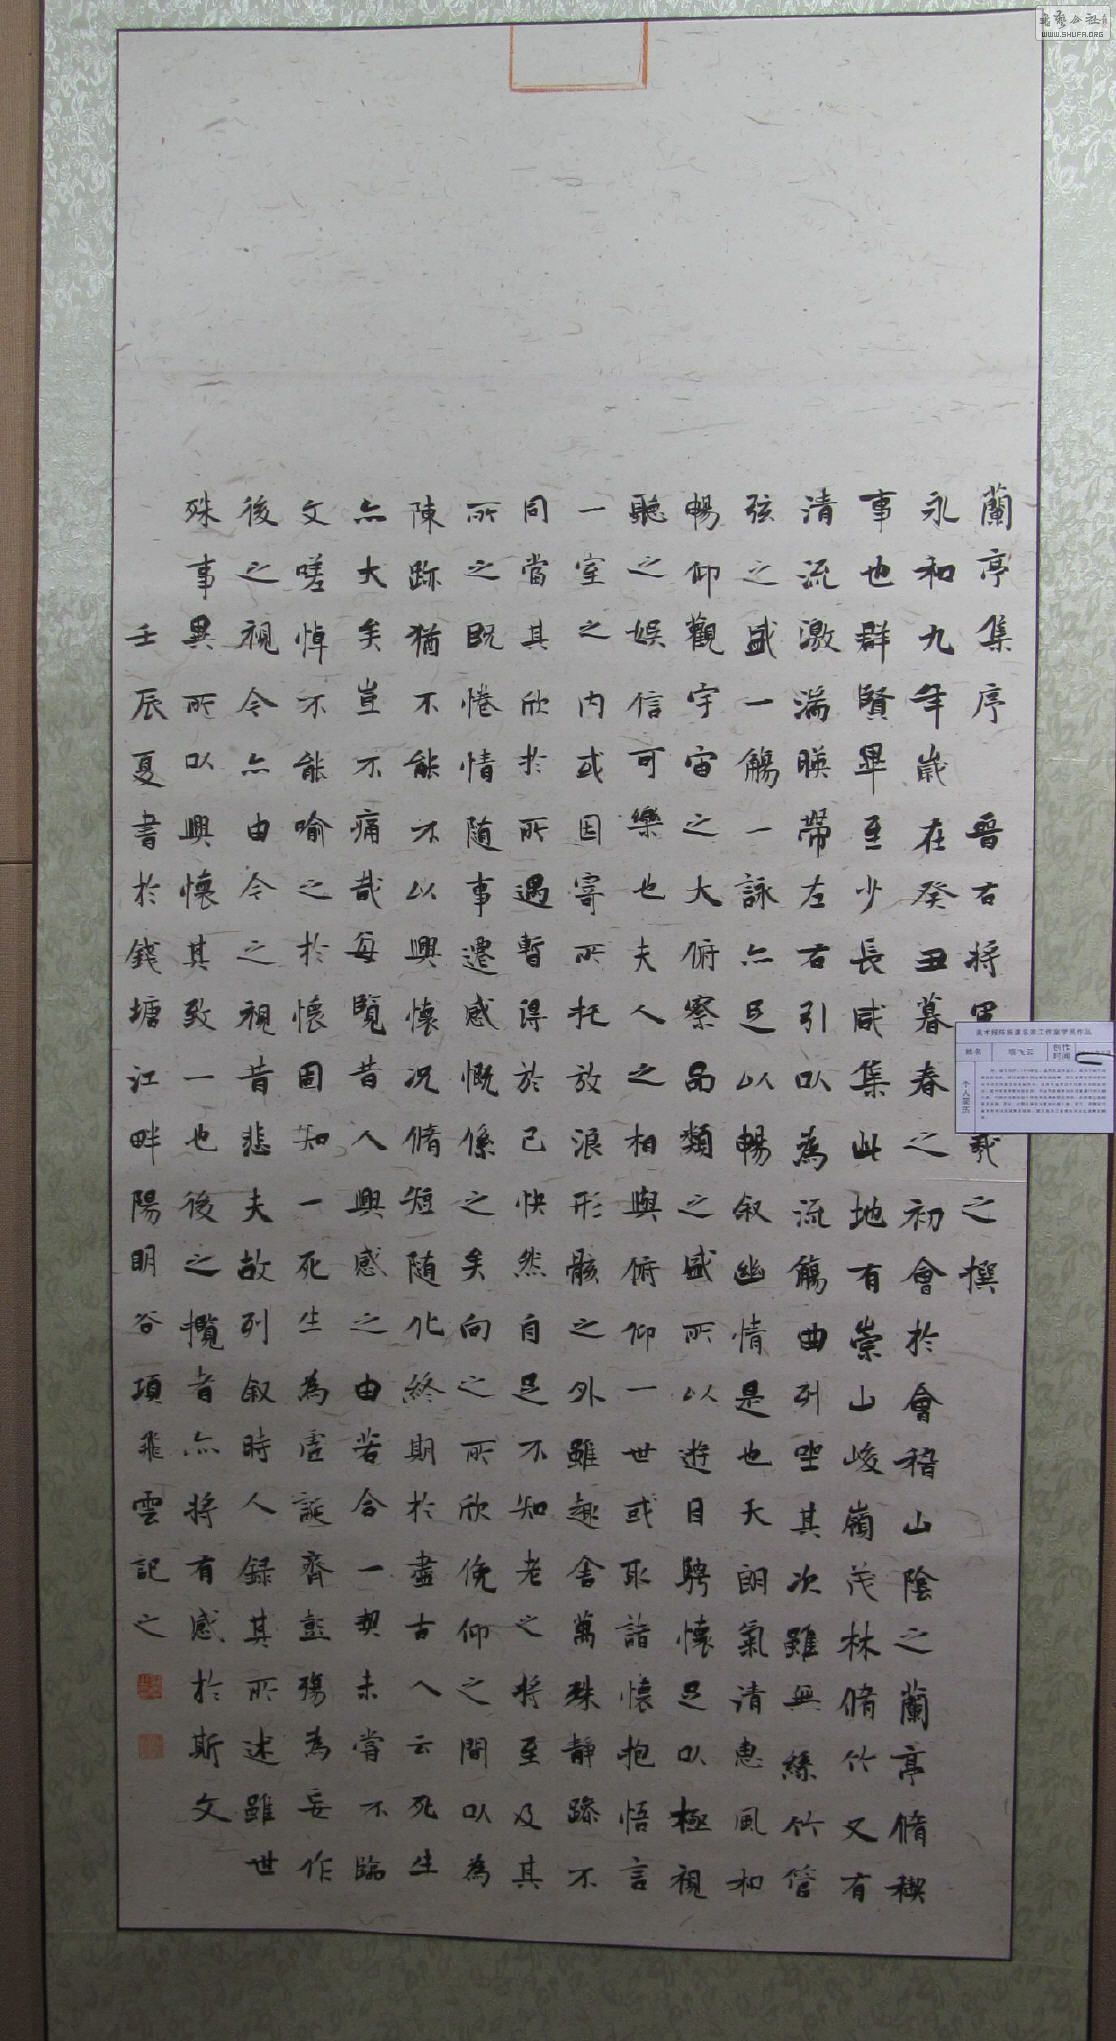 蘭亭集序 晉右將軍 羲之撰
永和九年歲在癸丑暮春之初會於會稽山陰之蘭亭脩稧
事也群賢畢至少長咸集此地有崇山峻嶺茂林脩竹又有
清流激湍暎帶左右引以為流觴曲列坐其次雖無絲竹管
弦之盛一觴一詠亦足以暢叙幽情是也天朗氣清惠風和
暢仰觀宇宙之大俯察品類之盛所以遊目騁懷足以極視
聽之娛信可樂也夫人之相與俯仰一世或取諸懷抱悟言
一室之内或因寄所托放浪形骸之外雖趣舍萬殊静躁不
同當其欣於所遇暫得於己快然自足不知老之将至及其
所之既惓情随事遷感慨係之矣向之所欣俛仰之間以為
陳跡猶不能不以興懷况脩短随化終期於盡古人云死生
亦大矣豈不痛哉每覽昔人興感之由若合一契未嘗不臨
文嗟悼不能喻之於懷固知一死生為虚誕齊彭殤為妄作
後之視今亦由今之視昔悲夫故列叙時人録其所述雖世
殊事異所以興懷其致一也後之攬者亦将有感於斯文
壬辰夏書於錢塘江畔陽明谷項飛雲記之
美术报陈振濂名家工作室学员作品
姓名 项飞云 创作时间
个人简历
书艺公社
WWW.SHUFA.ORG